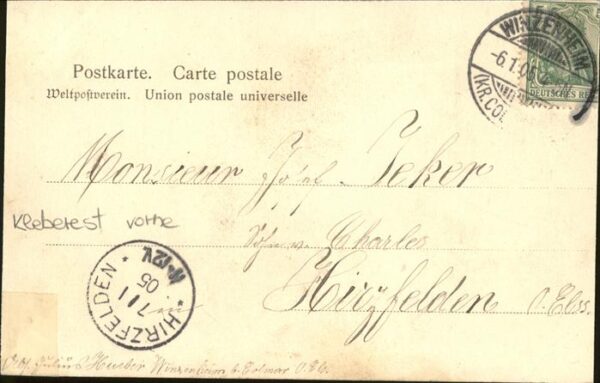 WINZENHEIM
-6.1.05
(KR.COL
DEUTSCHES RE
Postkarte. Carte postale
Weltpostverein. Union postale universelle
Monsieur Josef Jeker
Kleberest vorne
Sohn v. Charles
Hirzfelden O.Els.
HIRZFELDEN
7 1
05
Julius Hueber Winzenheim b. Colmar O. Els.